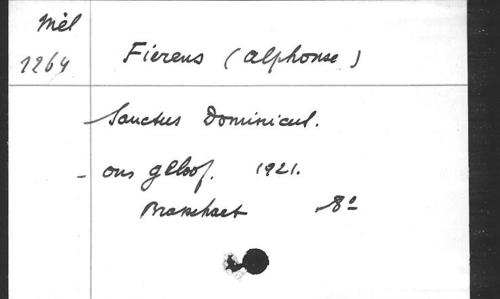 Mél
1264
Fierens (Alphonse)
Sanctus Dominicus.
- ons geloof. 1921.
Brasschaet 8°